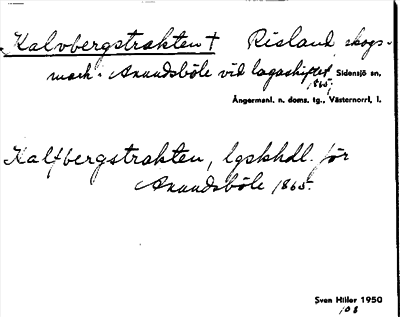 Kalvbergstrakten † Risland, skogs-
mark i Anundsböle vid lagaskiftet 1865, Sidensjö sn,
Ångermanl. n. doms. tg., Västernorrl. l.
Kalfbergstrakten, lgskhdl. för
Anundsböle 1865.
Sven Hiller 1950
108